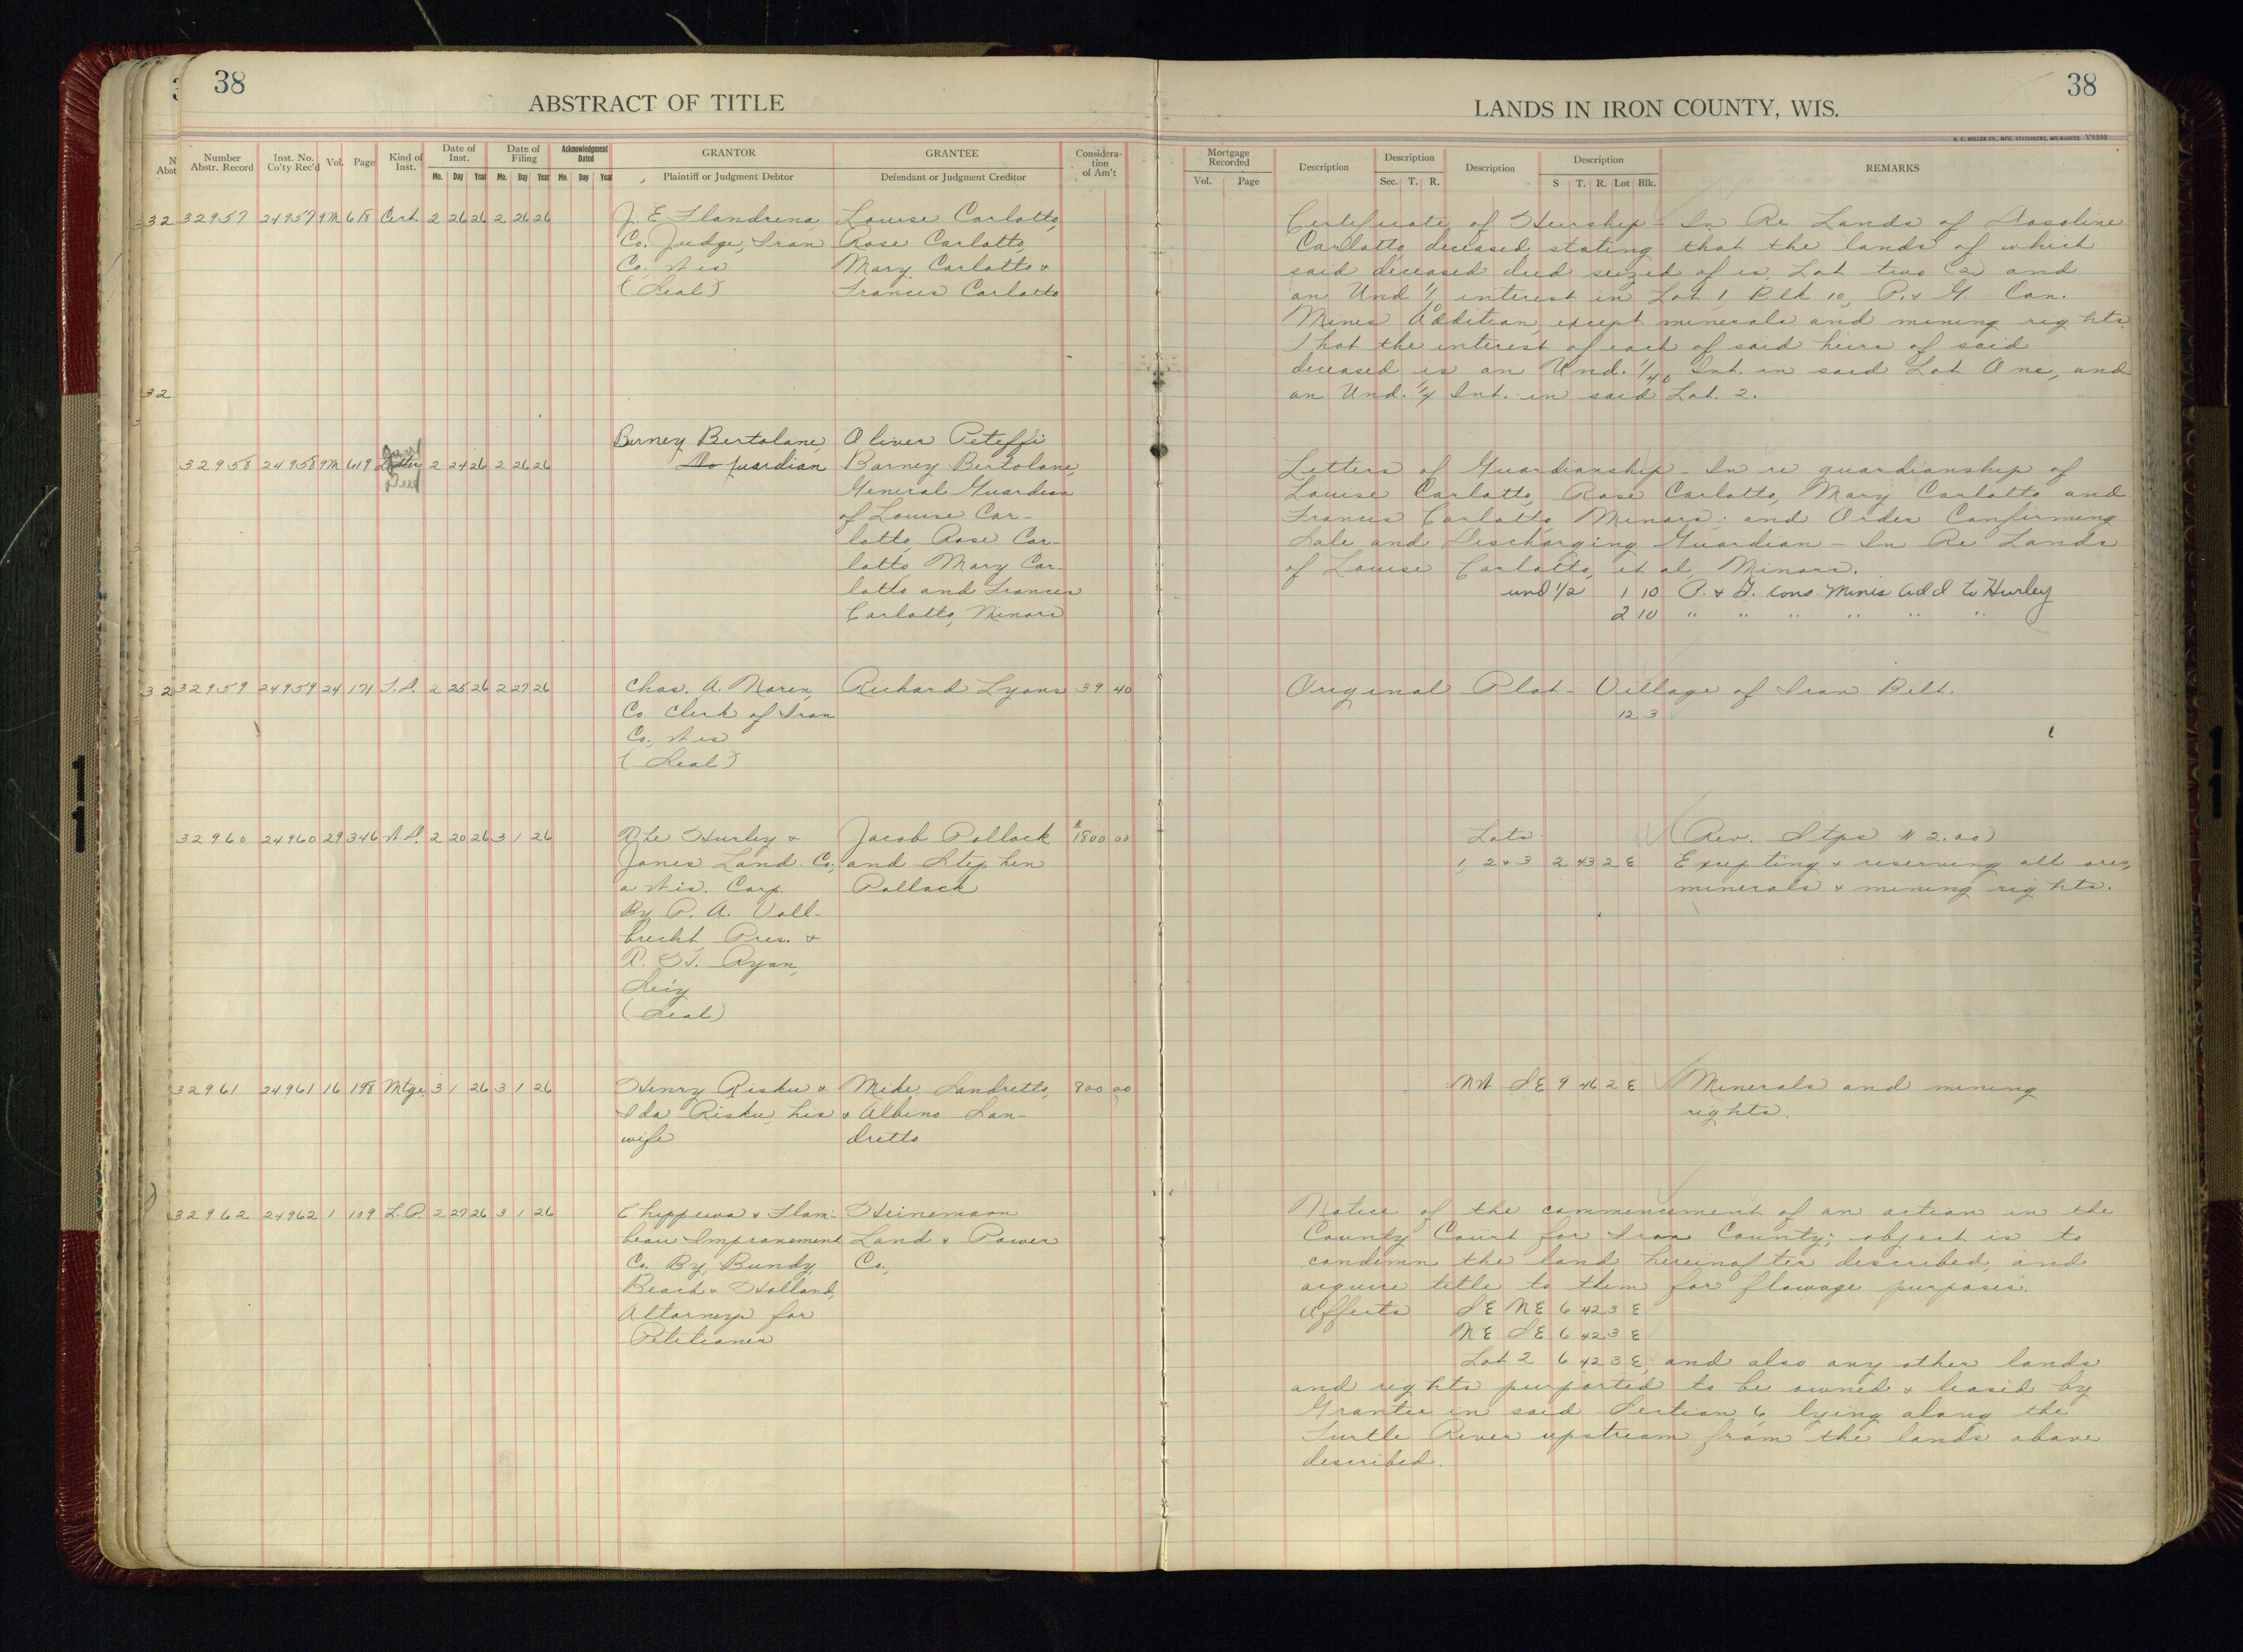 38
ABSTRACT OF TITLE
Number Abstr. Record
Inst. No. Co'ty Rec'd
Vol.
Page
Kind of Inst.
Date of Inst.
Mo. Day Year
Date of Filing
Mo. Day Year
Acknowledgment Dated
Mo. Day Year
GRANTOR
Plaintiff or Judgment Debtor
GRANTEE
Defendant or Judgment Creditor
Considera-
tion
of Am't
32957 24957 9M 618 Cert. 2 26 26 2 26 26 J. E. Flandrena, Louise Carlotto,
Co. Judge, Iron Rose Carlotto,
Co. Wis Mary Carlotto &
(Seal) Frances Carlotto
Barney Bertolane, Oliver Peteffi
32958 24958 9M 619 Letters 2 24 26 2 26 26 guardian Barney Bertolane,
Deed
General Guardian
of Louise Car-
lotto, Rose Car-
lotto, Mary Car-
lotto and Frances
Carlotto, Minors
32959 24959 24 171 T.D. 2 25 26 2 27 26 Chas. A. Noren, Richard Lyons 39 40
Co. Clerk of Iron
Co., Wis
(Seal)
32960 24960 29 346 W.D. 2 20 26 3 1 26 The Hurley & Jacob Pollack 1800 00
Jones Land Co., and Stephen
a Wis. Corp. Pollack
By P. A. Voll-
brecht, Pres. &
(Seal)
32961 24961 16 198 Mtge. 3 1 26 3 1 26 Henry Risku & Mike Landretto, 800 00
Ida Risku, his & Albino Lan-
wife dretto
32962 24962 1 109 L.P. 2 27 26 3 1 26 Chippewa & Flam- Heinemann
beau Improvement Land & Power
Co. By Bundy, Co.,
Beach & Holland,
Attorneys for
Petitioner
38
LANDS IN IRON COUNTY, WIS.
H. C. MILLER CO., MFG. STATIONERS, MILWAUKEE Y9398
Mortgage Recorded
Vol. Page
Description
Description
Sec. T. R.
Description
Description
S T. R. Lot Blk.
REMARKS
Certificate of Heirship - In Re Lands of
Carlotto, deceased, stating that the lands of which
said deceased died seized of is, Lot two (2) and
an Und 1/10 interest in Lot 1, Blk 10, P. & G. Con.
Mines Addition, except minerals and mining rights.
That the interest of each of said heirs of said
deceased is an Und. 1/40 Int. in said Lot One, and
an Und. 1/4 Int. in said Lot. 2.
Letters of Guardianship - In re guardianship of
Louise Carlotto, Rose Carlotto, Mary Carlotto and
Francis Carlotto, Minors; and Order Confirming
Sale and Discharging Guardian - In Re Lands
of Louise Carlotto, et al, Minors.
und 1/2 1 10 P. & G. Cons. Mines Add to Hurley
2 10 " " " " " "
Original Plat - Village of Iron Belt.
12 3
Lots (Rev. Stps $2.00)
1, 2 & 3 2 43 2 E Excepting & reserving all ores,
minerals & mining rights.
NW SE 9 46 2 E Minerals and mining
rights.
Notice of the commencement of an action in the
County Court for Iron County; object is to
condemn the land hereinafter described, and
acquire title to them for flowage purposes.
Affects SE NE 6 42 3 E
NE SE 6 42 3 E
Lot 2 6 42 3 E, and also any other lands
and rights purported to be owned & leased by
Grantee in said Section 6, lying along the
Turtle River upstream from the lands above
described.